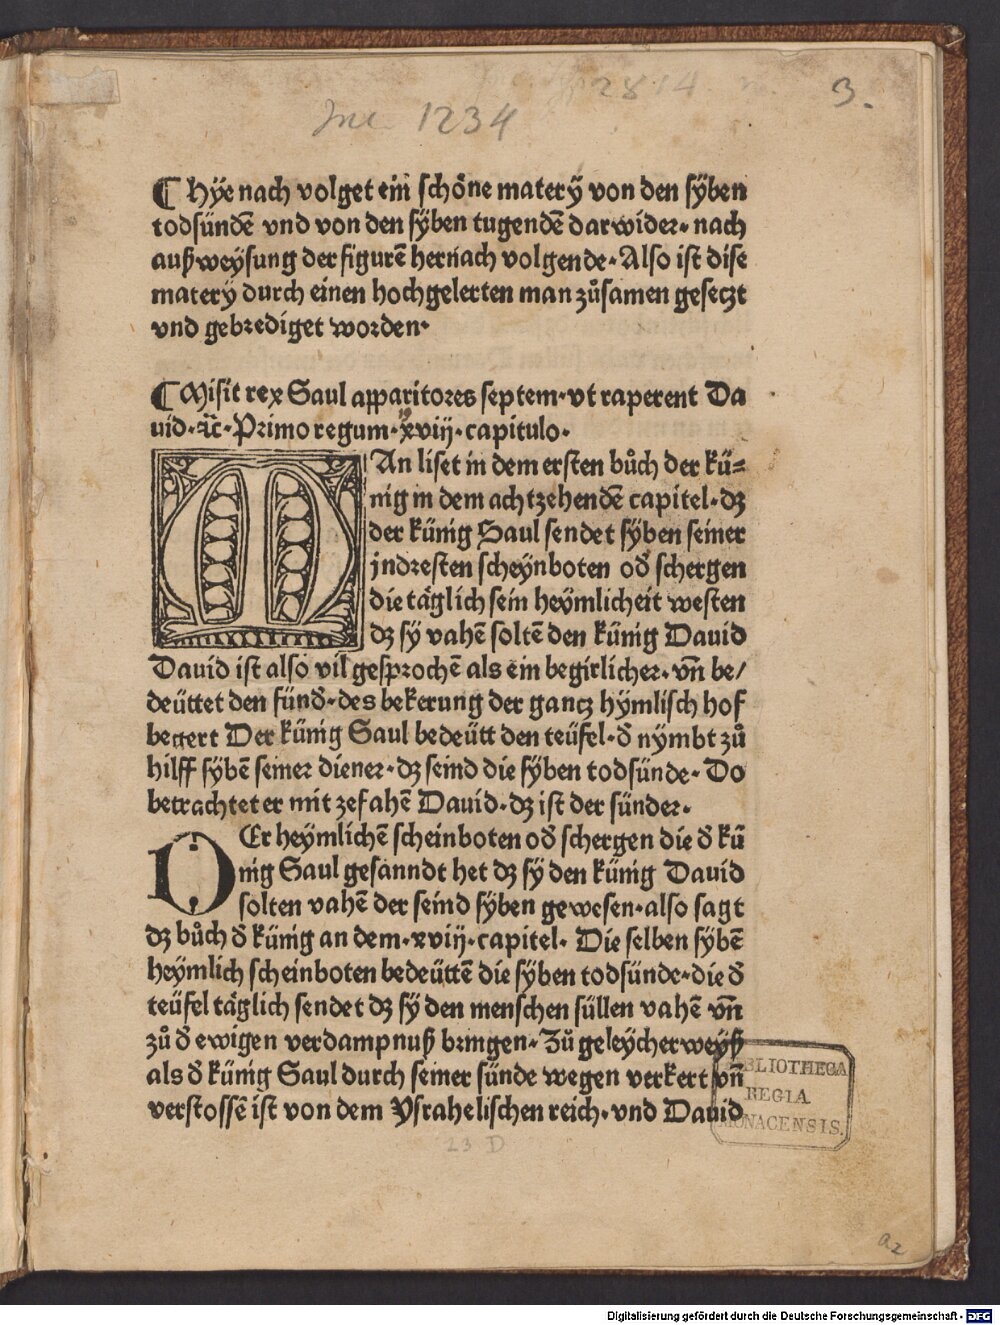 Inc 1234
3.
¶ Hÿe nach volget ein schöne materÿ von den sÿben
todsündē vnd von den sÿben tugendē darwider· nach
außweÿsung der figurē hernach volgende· Also ist dise
materÿ durch einen hochgelerten man zůsamen gesetzt
vnd gebrediget worden·
¶ Misit rex Saul apparitores septem· vt raperent Da
uid· ⁊c̄· Primo regum· xviij· capitulo·
MAn liset in dem ersten bůch der kü⸗
nig in dem achtzehendē capitel· dz
der künig Saul sendet sÿben seiner
jndresten scheÿnboten od̕ schergen
die täglich sein heÿmlicheit westen
dz sÿ vahē soltē den künig Dauid
Dauid ist also vil gesprochē als ein begirlicher· vn̄ be/
deüttet den sünd̕· des bekerung der gantz hÿmlisch hof
begert Der künig Saul bedeütt den teüfel· d̕ nÿmbt zů
hilff sÿbē seiner diener· dz seind die sÿben todsünde· Do
betrachtet er mit zefahē Dauid· dz ist der sünder·
DEr heÿmlichē scheinboten od̕ schergen die d̕ kü
nig Saul gesanndt het dz sÿ den künig Dauid
solten vahē der seind sÿben gewesen· also sagt
dz bůch d̕ künig an dem· xviij· capitel· Die selben sÿbē
heÿmlich scheinboten bedeüttē die sÿben todsünde· die d̕
teüfel täglich sendet dz sÿ den menschen süllen vahē vn̄
zů d̕ ewigen verdampnuß bringen· Zů geleÿcher weÿß
als d̕ künig Saul durch seiner sünde wegen verkert vn̄
verstossē ist von dem Ysrahelischen reich· vnd Dauid
BIBLIOTHECA
REGIA
MONACENSIS.
23 D
a2
Digitalisierung gefördert durch die Deutsche Forschungsgemeinschaft - DFG